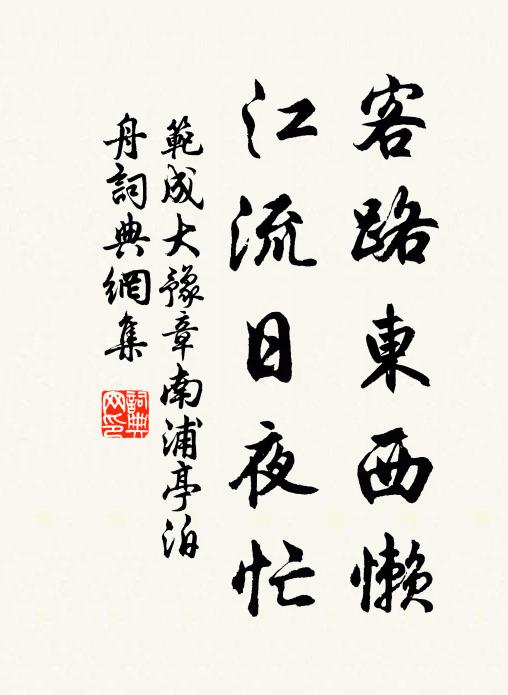 客路東西懶
江流日夜忙
範成大豫章南浦亭泊
舟詞典網集
詞典网印